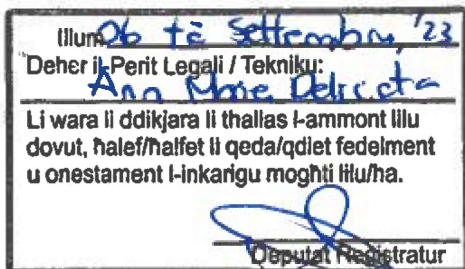 Illum 06 ta Settembru, '23
Deher il-Perit Legali / Tekniku:
Ann Marie
Li wara li ddikjara li tħallas l-ammont lilu
dovut, ħalef/ħalfet li qeda/qdiet fedelment
u onestament l-inkarigu mogħti lilu/ha.
Deputat Reġistratur